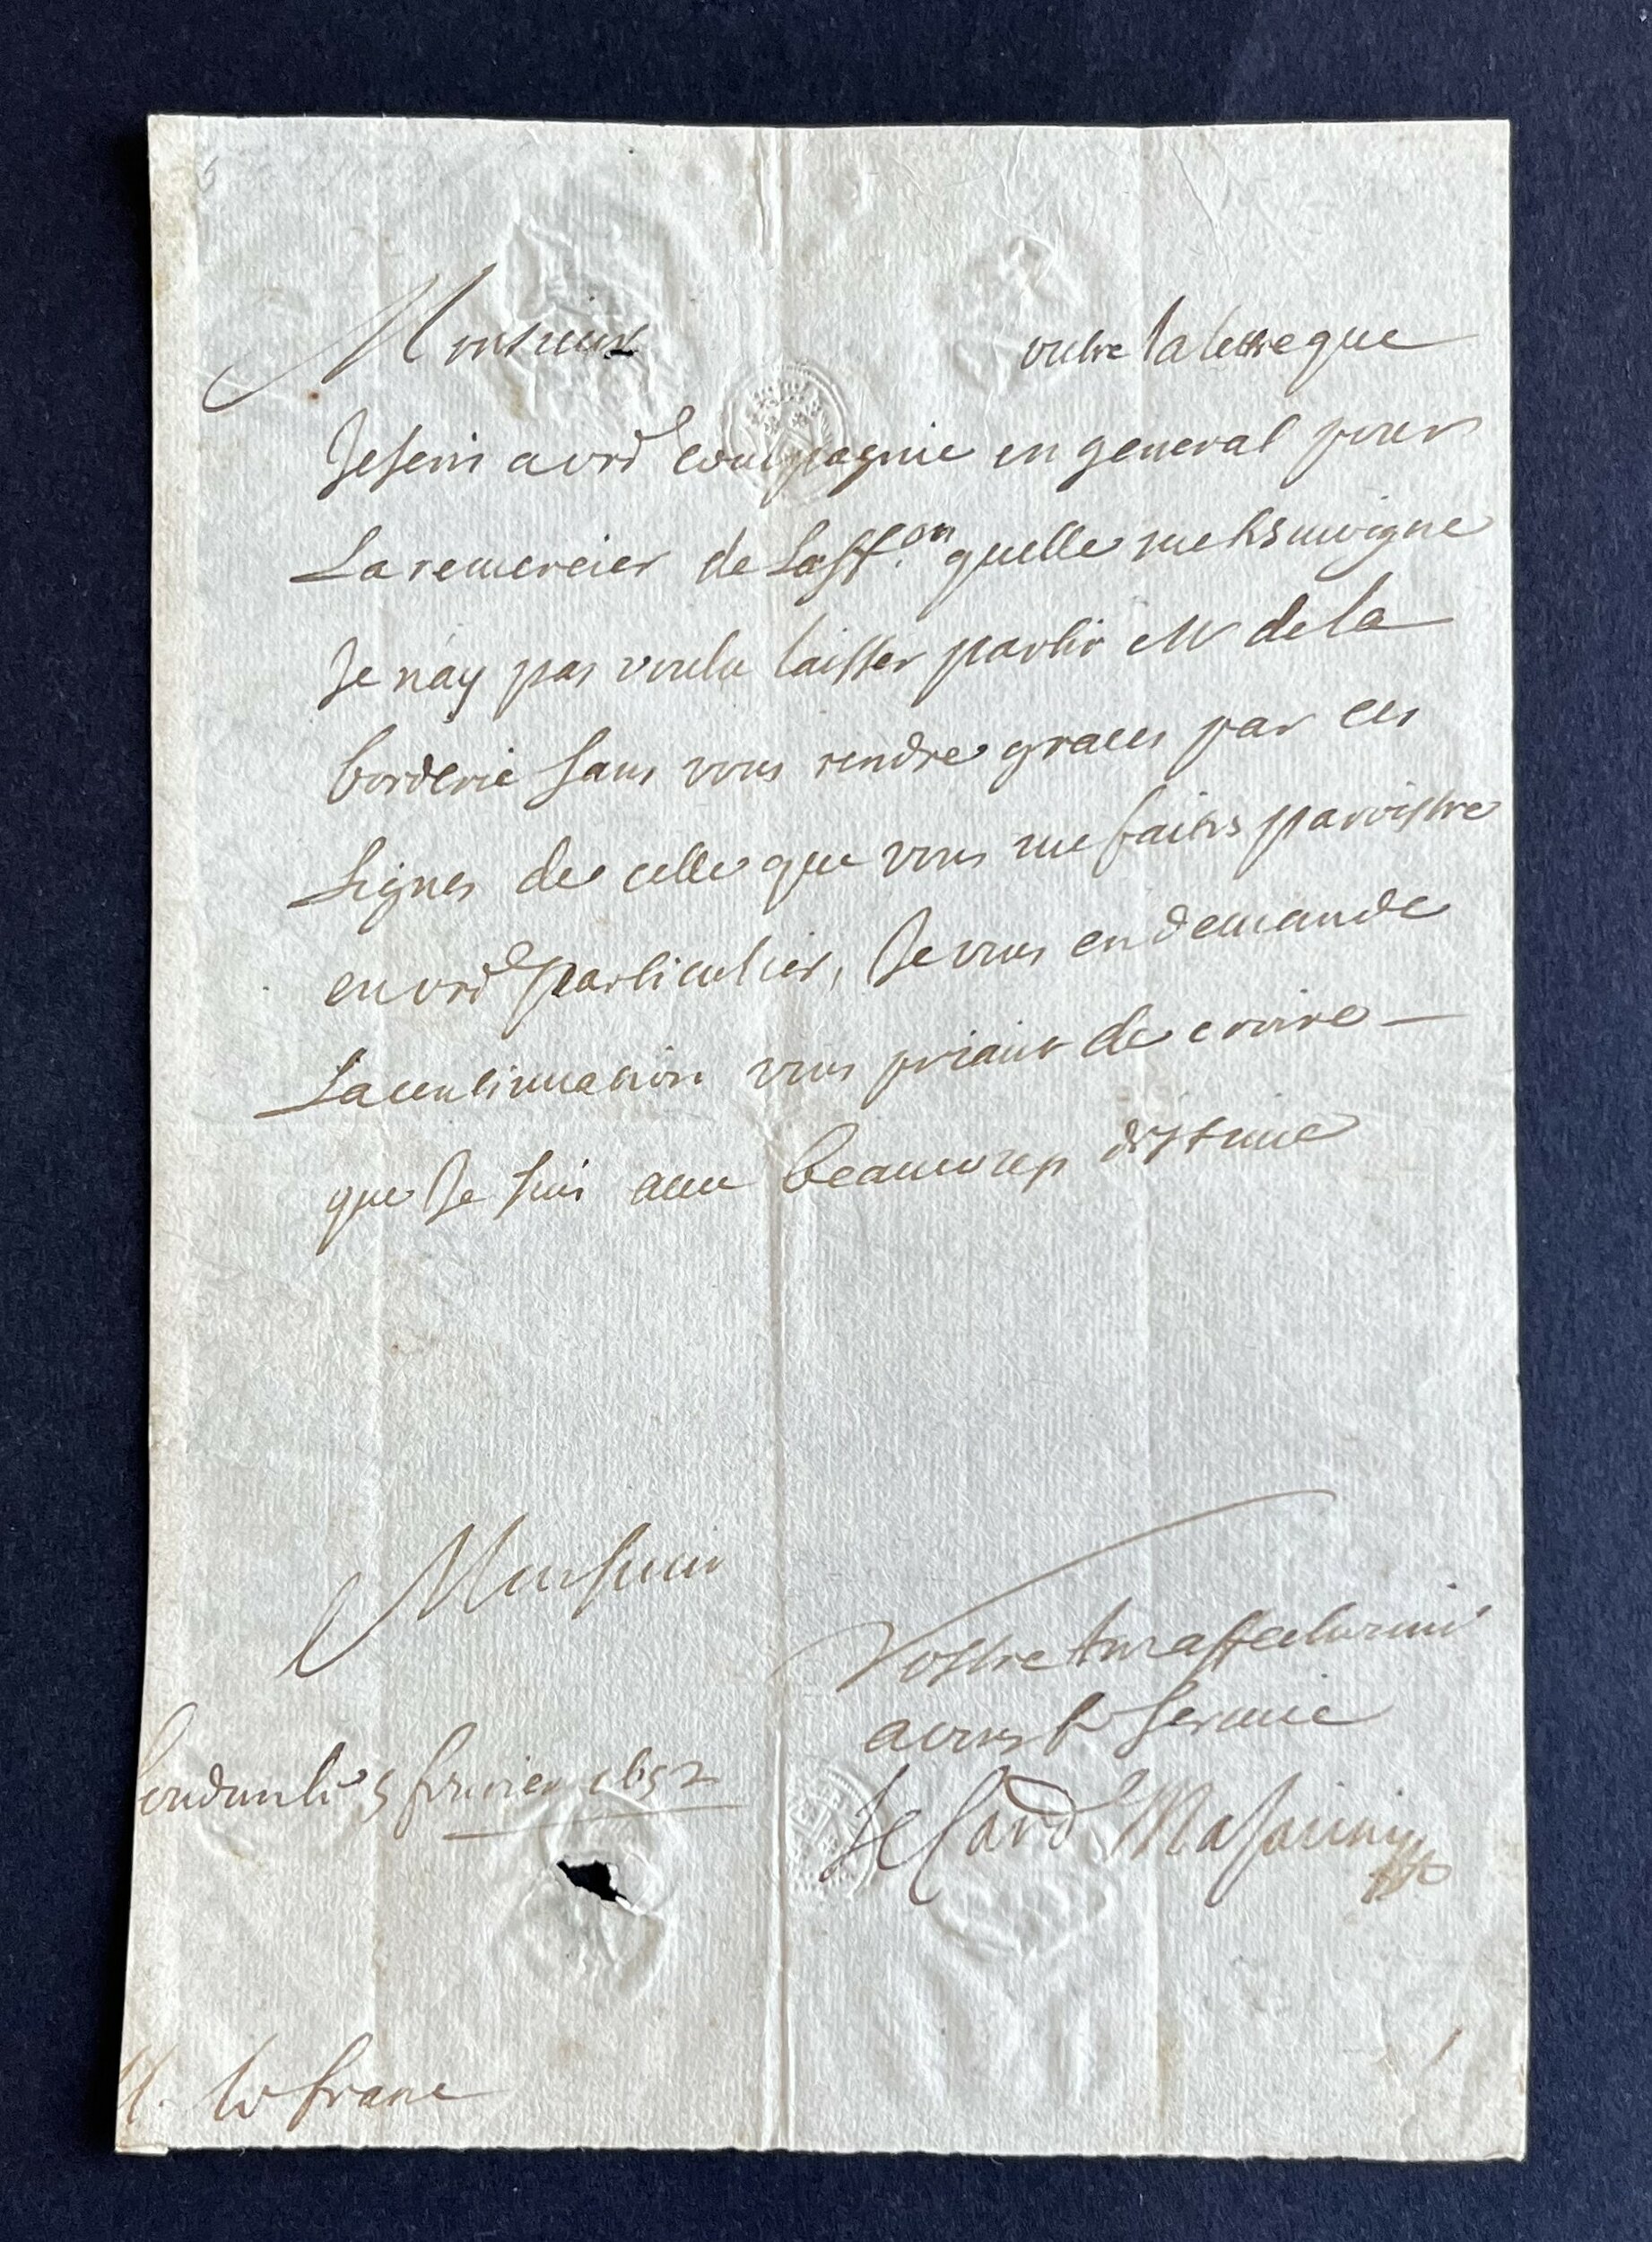 Monsieur outre la lettre que
Jescris a vr̃e compagnie en general pour
La remercier de Laff.on quelle me tesmoigne
Je nay pas voulu laisser partir Mr de la
borderie sans vous rendre graces par ces
Lignes de celle que vous me faites paroistre
en vr̃e particulier, Je vous en demande
La continuation vous priant de croire
que Je suis avec beaucoup destime
Monsieur
Vostre tres affectionné
a vous f. service
Le Card Mazarini
Loudun le 5 fevrier 1652
M. le franc